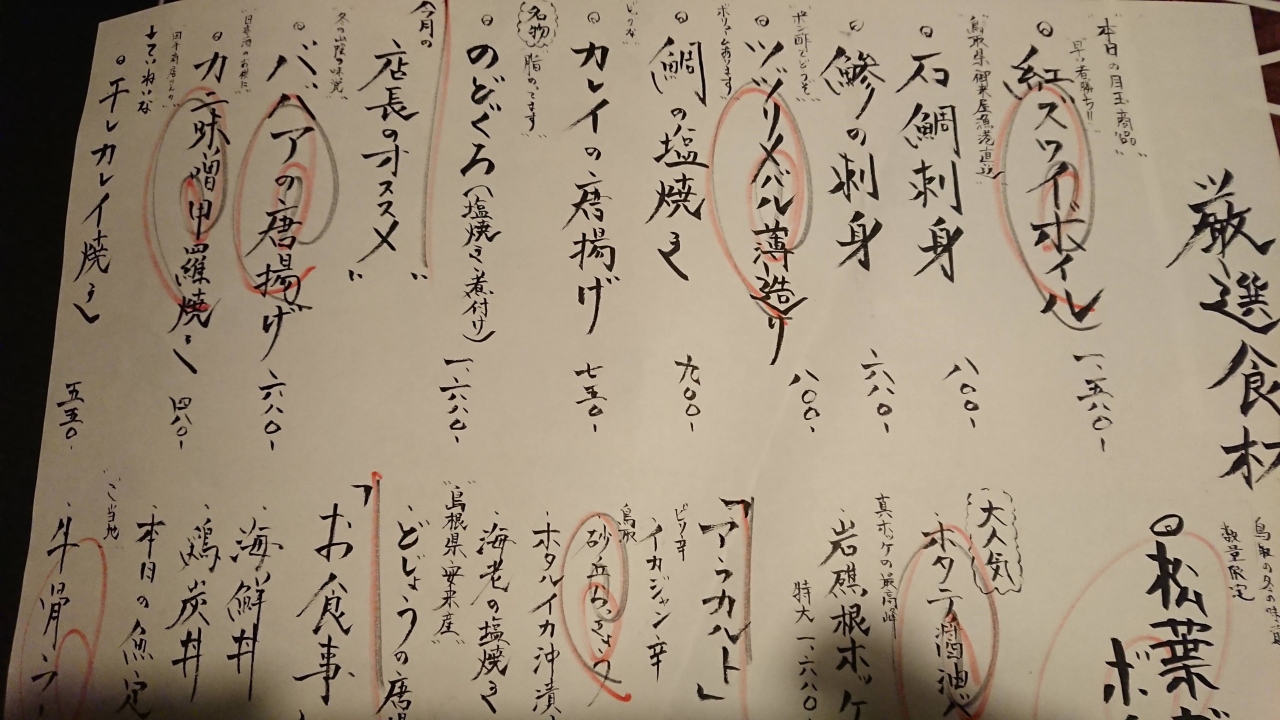 厳選食材
本日の目玉商品
早い者勝ち!!
紅ズワイボイル 一、五八〇-
鳥取県御来屋漁港直送
石鯛刺身 八〇〇-
鰺の刺身 六八〇-
ポン酢でどうぞ
ヅヅリメバル薄造り 八〇〇-
ボリュームあります
鯛の塩焼き 九〇〇-
カレイの唐揚げ 七五〇-
名物
脂のってます
のどぐろ(塩焼き・煮付け) 一、六八〇-
今月の
店長のオススメ"
冬の山陰の味覚
ババアの唐揚げ 六八〇-
日本酒のお供に
カニ味噌甲羅焼き 四八〇-
ていねいな
干しカレイ焼き 五五〇-
鳥取の冬の味
数量限定
松葉が
ボイ
大人気
ホタテ醤油バ
真ホッケの最高峰
岩礁根ホッケ
特大 一、六八〇
「アラカルト」
ピリ辛
イカジャン辛
鳥取
砂丘らっきょう
ホタルイカ沖漬
海老の塩焼き
"島根県安来産"
どじょうの唐揚
「お食事
海鮮丼
鶏炭丼
本日の魚定
ご当地
牛骨ラー